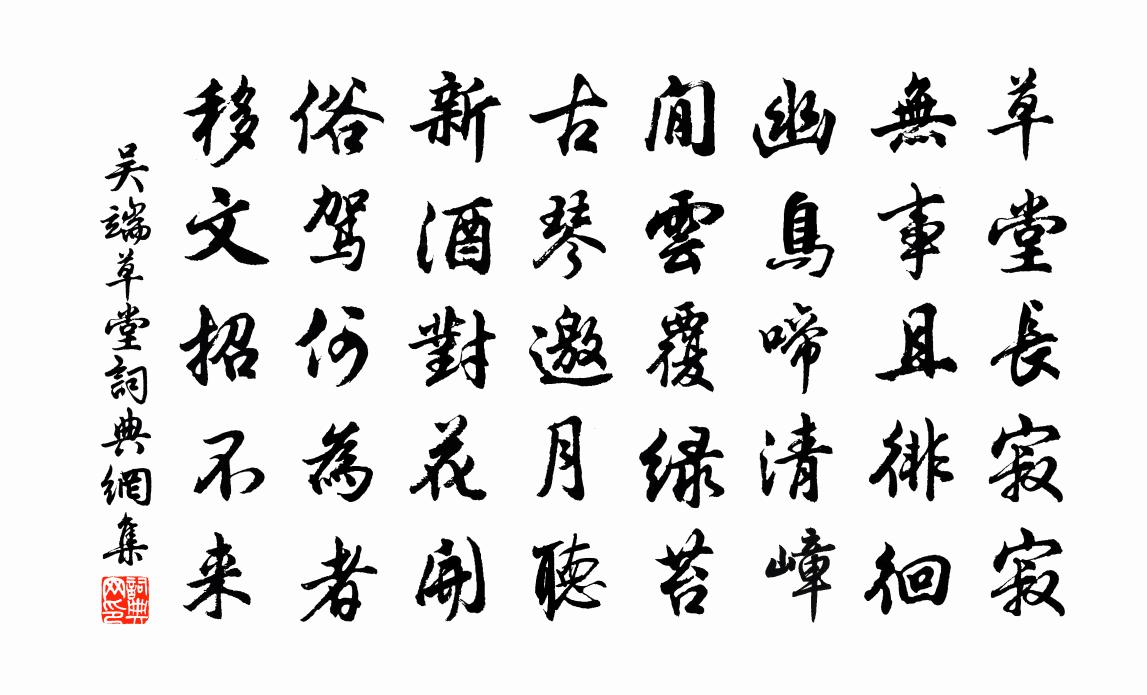 草堂長寂寂
無事且徘徊
幽鳥啼清嶂
閒雲覆緑苔
古琴邀月聽
新酒對花開
俗駕何為者
移文招不来
吴端草堂詞典網集
詞典网印